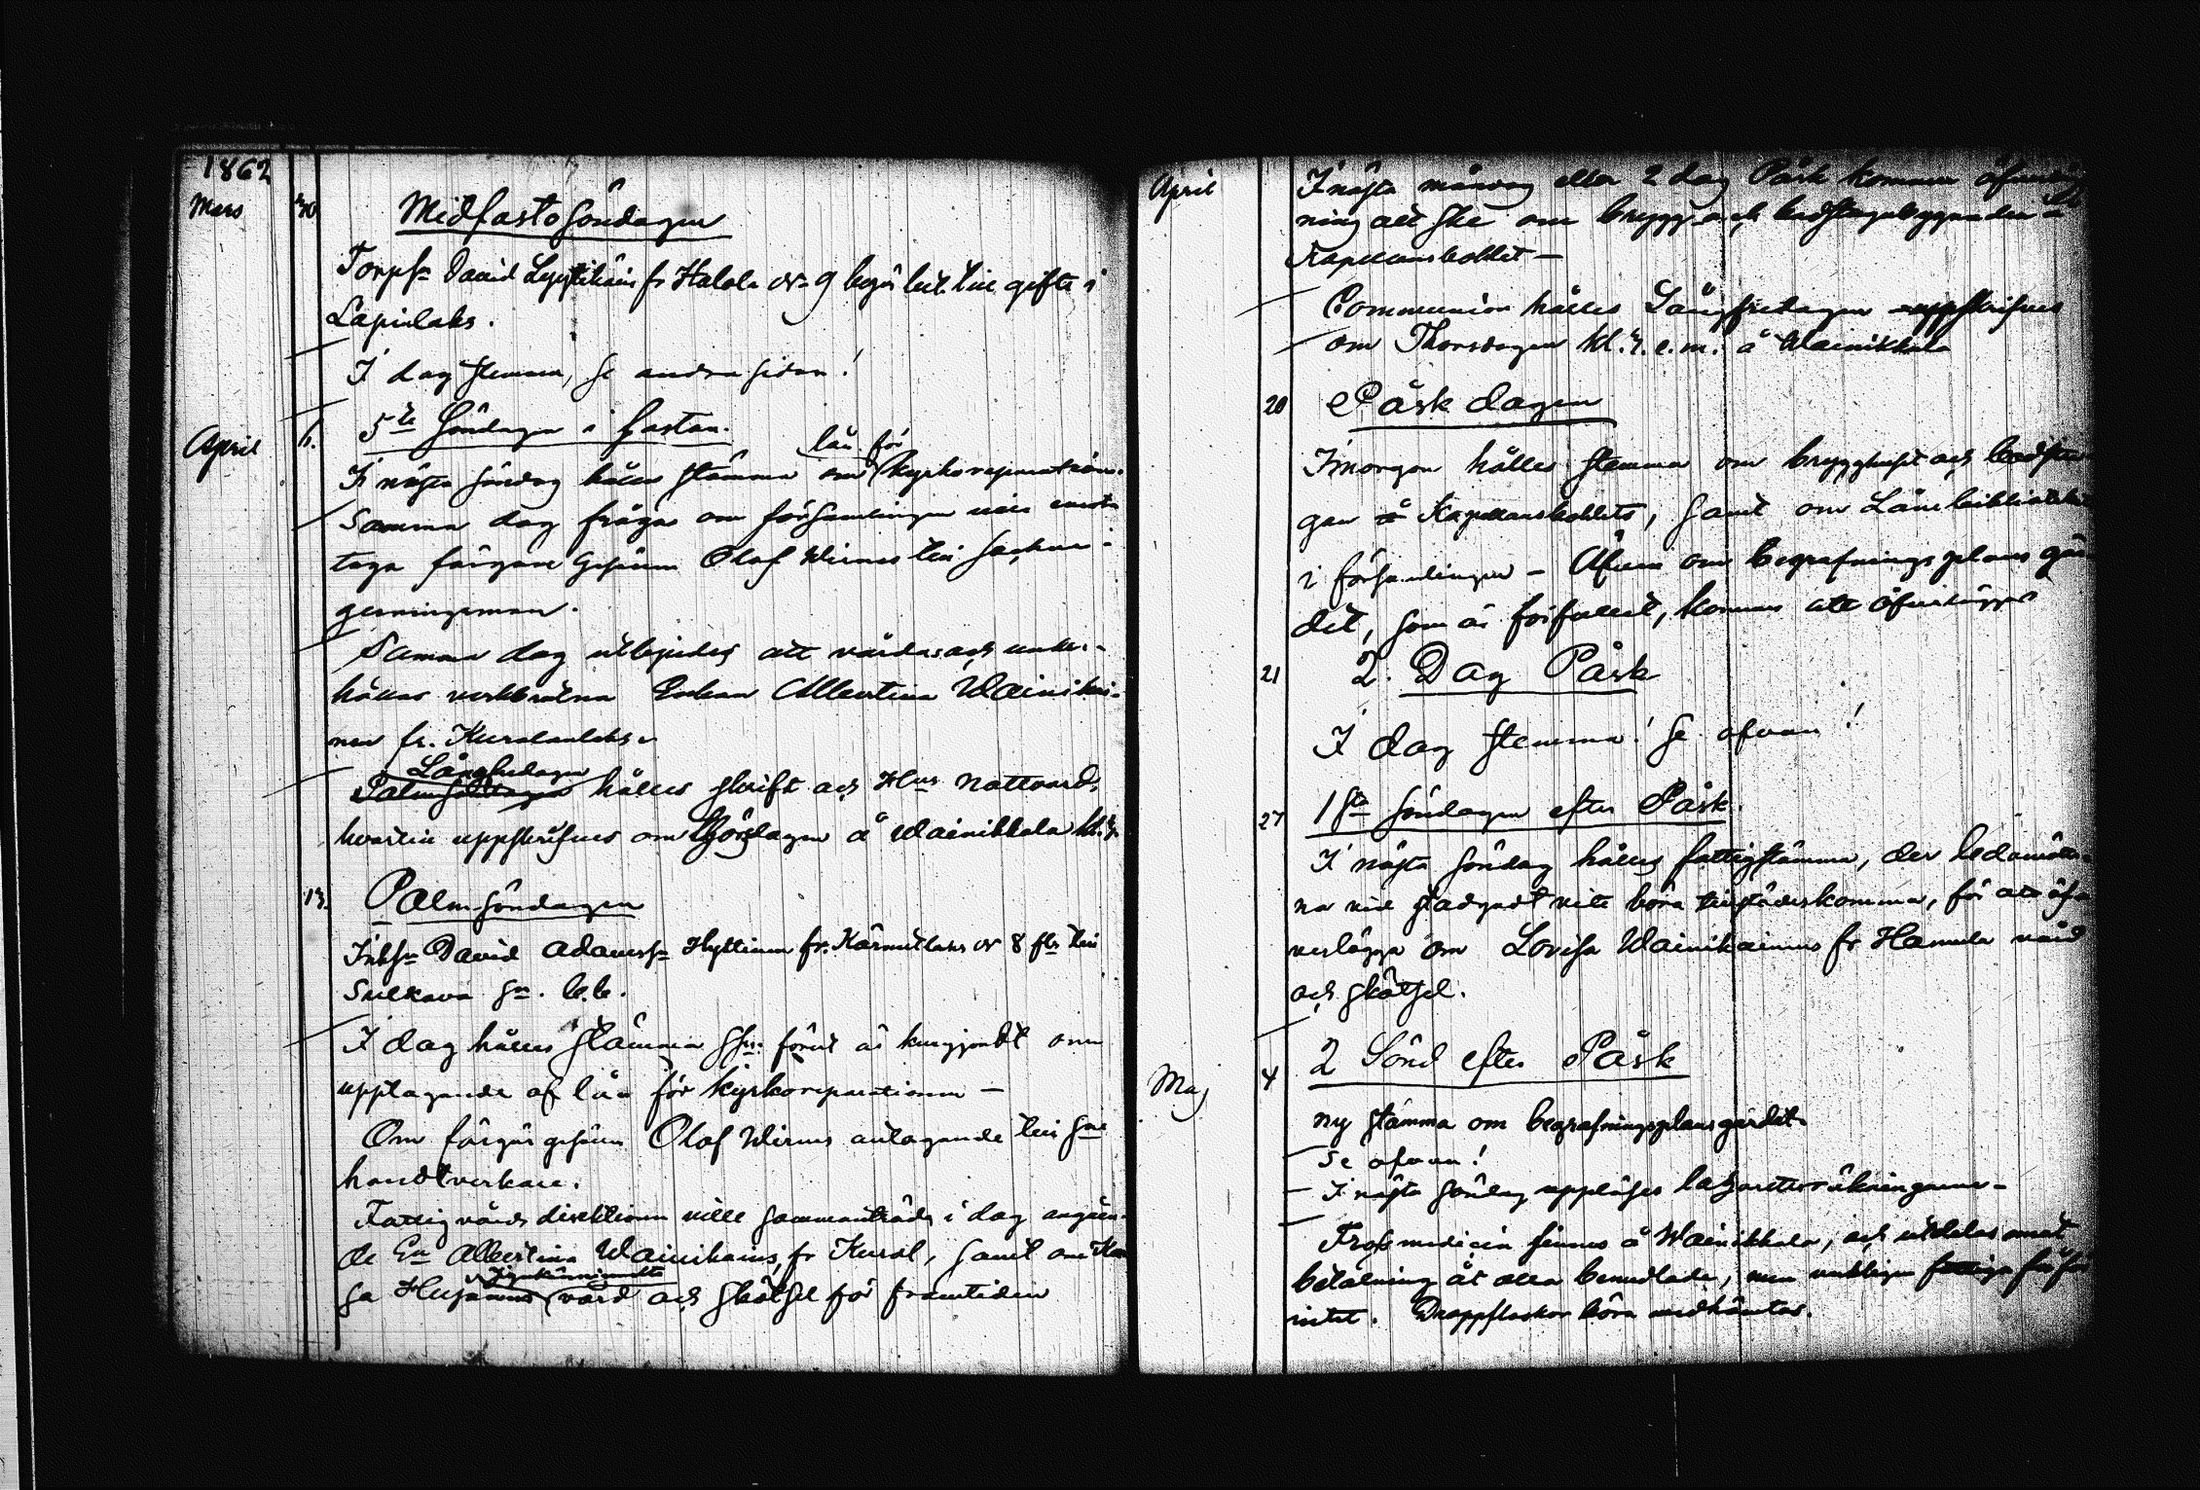 1862
Mars 30 Midfasto Söndagen
Torps: David Leppihäin fr Halola nr 9 begär lect. till gifte i
Lapinlaks.
I dag stemma, se andra sidan!
April 6. 5te Söndagen i fastan.
lån för
I nästa söndag hålles stämma om kyrkoreparation.
Samma dag frågas om församlingen vill emot
taga färgare Gesällen Olaf Wirnes till sochne-
gerningsman.
Samma dag utbjudes att vårdas och under-
hållas Enkan Albertina Wainikai-
nen fr.
Långfredagen
Palmsöndagen hålles skrift och Hns Nattvard,
hvartill uppskrifves om Thorsdagen å Wainikkala kl. 3.
13. Palm-Söndagen
Inhs: David Adamss: Hyttinen fr. Kärmutlaks nr 8 fbr till
Sulkava sn.
I dag hålles stämma som förut är kungjordt om
upptagande af lån för kyrkoreparationen —
Om färgargesällen Olaf Wirnes antagande till sne
handtverkare.
Fattigvårds direktionen ville sammanträda i dag angåen-
de En Albertina Wainikains, fr Kural, samt om
sa vård och skötsel för framtiden
April I nästa måndag eller 2 dag Påsk kommer
ning att ske om brygg- och badstugubyggnaden å
Kapellansbohlet —
Communion hålles Långfredagen uppskrifves
om Thorsdagen kl. 3. e.m. å Wainikkala
20 Påskdagen
I morgon hålles stemma om brygghuset och badstu
gan å Kapellansbohlets, samt om Lånebibliothek
i församlingen — Äfven om begrafningsplans gär
det, som är förfallet, kommer att öfverläggas
21 2. Dag Påsk
I dag stemma! se ofvan!
27 1sta Söndagen efter Påsk.
I nästa söndag hålles fattigstämma, der ledamöter-
na vid stadgadt vite böra tillstädeskomma, för att öf
verlägga om Lovisa Wainikainens fr Hamula vård
och skötsel.
Maj 4 2 Sönd efter Påsk
Ny stämma om begrafningsplansgärdet
Se ofvan!
I nästa söndag uppläses lazarettsräkningarne —
Frossmedicin finnes å Wainikkala, och utdelas emot
betalning åt alla bemedlade, men
intet. Droppflaskor böra medhämtas.